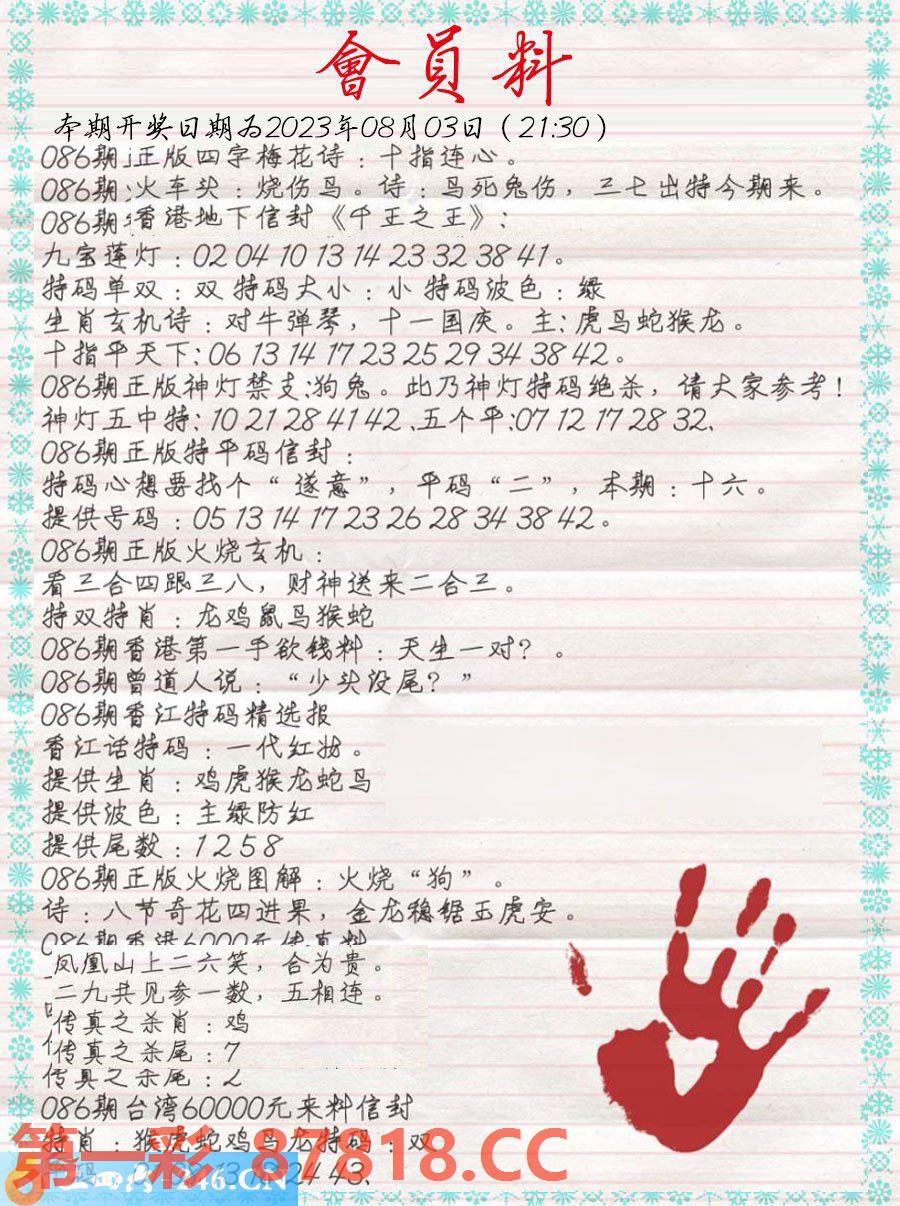 會員料
本期开奖日期为2023年08月03日（21:30）
086期正版四字梅花诗：十指连心。
086期:火车头：烧伤鸟。诗：鸟死兔伤，三七出特今期来。
086期香港地下信封《千王之王》:
九宝莲灯：02 04 10 13 14 23 32 38 41。
特码单双：双 特码大小：小 特码波色：绿
生肖玄机诗：对牛弹琴，十一国庆。主:虎鸟蛇猴龙。
十指平天下:06 13 14 17 23 25 29 34 38 42。
086期正版神灯禁支:狗兔。此乃神灯特码绝杀，请大家参考！
神灯五中特:10 21 28 41 42、五个平:07 12 17 28 32、
086期正版特平码信封：
特码心想要找个“遂意”，平码“二”，本期：十六。
提供号码：05 13 14 17 23 26 28 34 38 42。
086期正版火烧玄机：
看三合四跟三八，财神送来二合三。
特双特肖：龙鸡鼠马猴蛇
086期香港第一手欲钱料：天生一对？。
086期曾道人说：“少头没尾？”
086期香江特码精选报
香江话特码：一代红妆。
提供生肖：鸡虎猴龙蛇马
提供波色：主绿防红
提供尾数：1 2 5 8
086期正版火烧图解：火烧“狗”。
诗：八节奇花四进果，金龙稳锯玉虎安。
086期香港6000元传真料
凤凰山上二六笑，合为贵。
二九共见参一数，五相连。
传真之杀肖：鸡
传真之杀尾：7
086期台湾60000元来料信封
特肖：猴虎蛇鸡马龙特码：双
24 43、
第一彩 87818.CC
246.CN